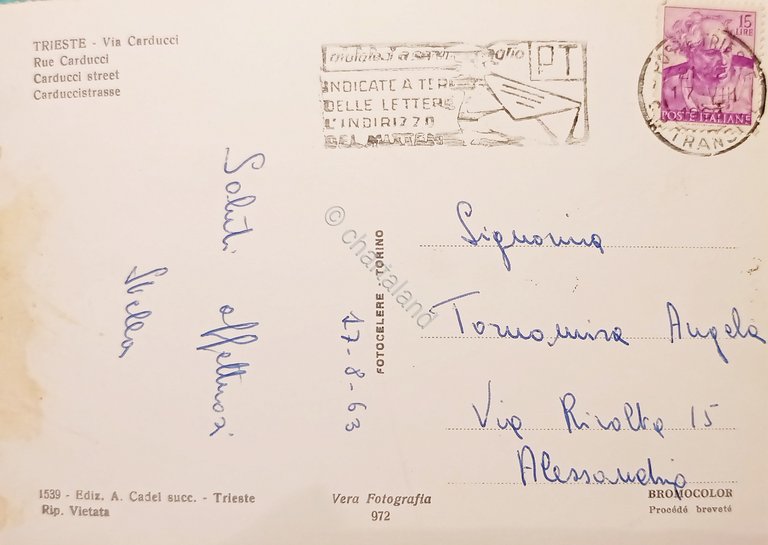 TRIESTE - Via Carducci
Rue Carducci
Carducci street
Carduccistrasse
PT
INDICATE A TERGO
DELLE LETTERE
L'INDIRIZZO
DEL MITTENTE
15
LIRE
POSTE ITALIANE
TRANSI
Saluti affettuosi
Stella
17-8-63
© chartaland
FOTOCELERE TORINO
Signorina
Tornomira Angela
Via Rivolta 15
Alessandria
1539 - Ediz. A. Cadel succ. - Trieste
Rip. Vietata
Vera Fotografia
972
BROMOCOLOR
Procédé breveté